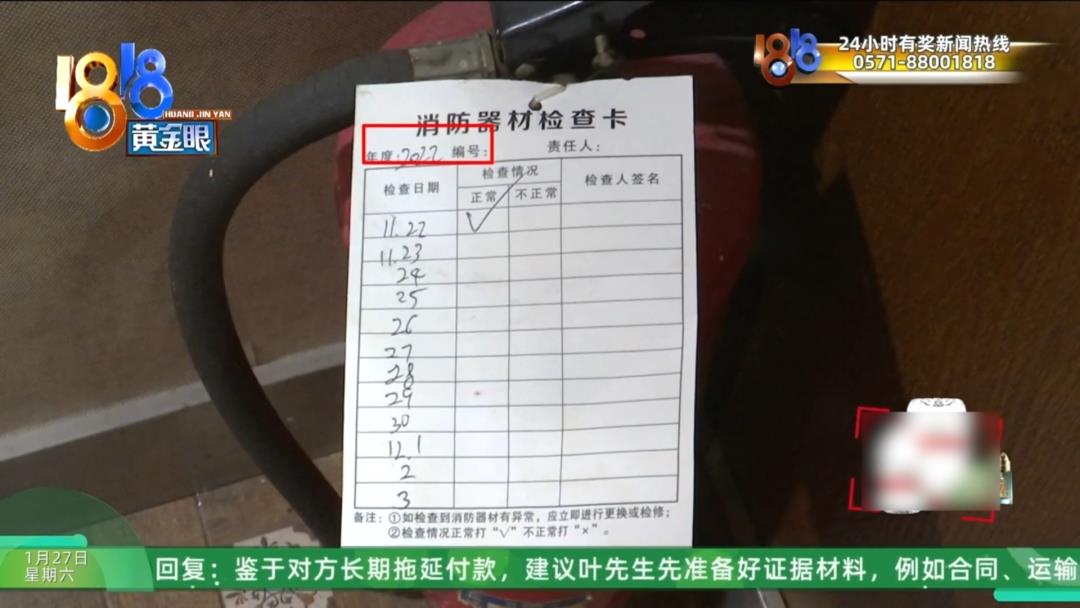 1818
HUANG JIN YAN
黄金眼
1818
24小时有奖新闻热线
0571-88001818
消防器材检查卡
年度:2022 编号: 责任人:
检查日期 检查情况 检查人签名
正常 不正常
11.22 √
11.23
24
25
26
27
28
29
30
12.1
2
3
备注:①如检查到消防器材有异常,应立即进行更换或检修;
②检查情况正常打“√”不正常打“×”。
1月27日
星期六
回复:鉴于对方长期拖延付款,建议叶先生先准备好证据材料,例如合同、运输